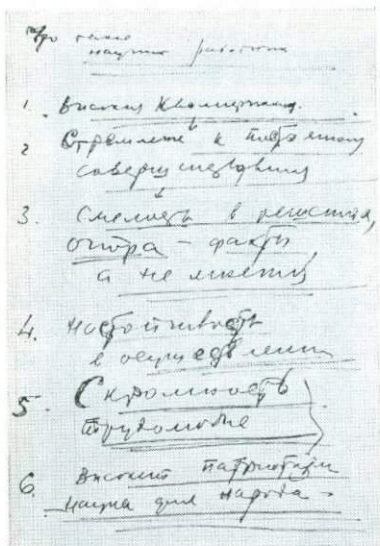 Что такое
научный работник
1. Высокая квалификация.
2 Стремление к постоянному
совершенствованию
3. Смелость в решениях,
опора – факты,
а не мнения
4. Настойчивость
в осуществлении
5. Скромность
трудолюбие
6. Высокий патриотизм
наука для народа.